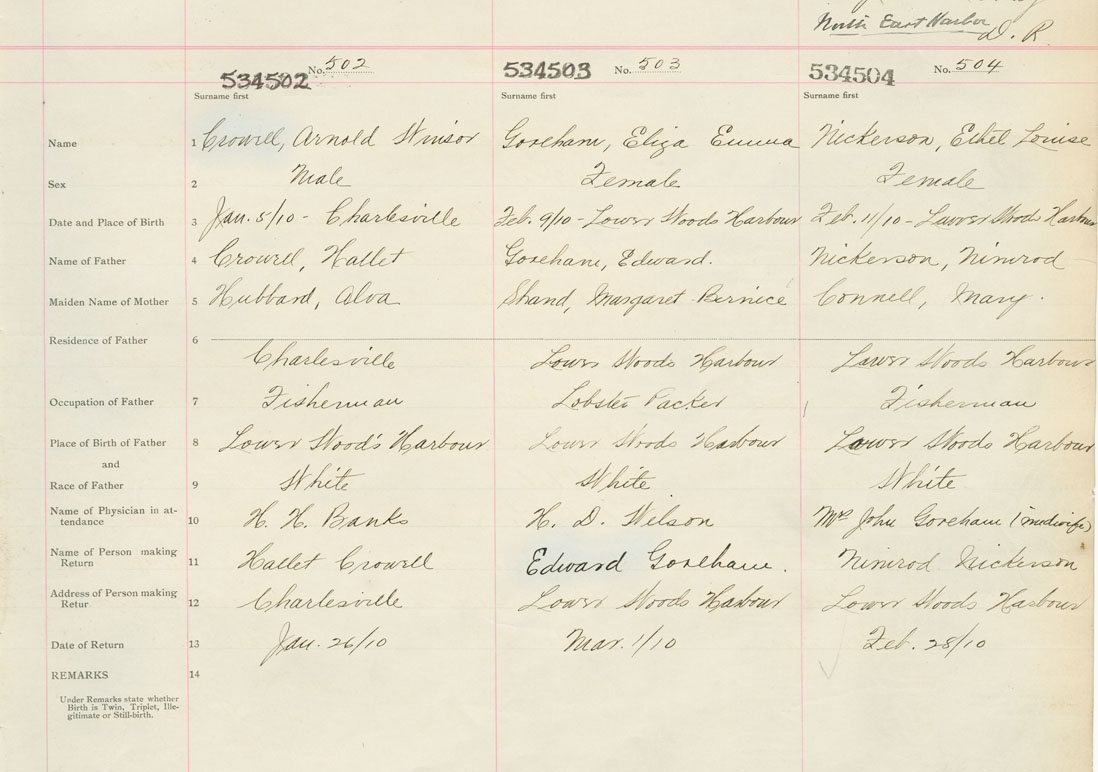 North East Harbor
D. R.
534502 No. 502
534503 No. 503
534504 No. 504
Surname first
Surname first
Surname first
Name 1 Crowell, Arnold Winsor Goreham, Eliza Emma Nickerson, Ethel Louise
Sex 2 Male Female Female
Date and Place of Birth 3 Jan. 5/10 - Charlesville Feb. 9/10 - Lower Woods Harbour Feb. 11/10 - Lower Woods Harbour
Name of Father 4 Crowell, Hallet Goreham, Edward. Nickerson, Nimrod
Maiden Name of Mother 5 Hubbard, Alva Shand, Margaret Bernice Connell, Mary.
Residence of Father 6
Charlesville Lower Woods Harbour Lower Woods Harbour
Occupation of Father 7 Fisherman Lobster Packer Fisherman
Place of Birth of Father 8 Lower Wood's Harbour Lower Woods Harbour Lower Woods Harbour
and
Race of Father 9 White White White
Name of Physician in at-
tendance 10 H. H. Banks H. D. Wilson Mrs John Goreham (midwife)
Name of Person making
Return 11 Hallet Crowell Edward Goreham. Nimrod Nickerson
Address of Person making
Retur 12 Charlesville Lower Woods Harbour Lower Woods Harbour
Date of Return 13 Jan. 26/10 Mar. 1/10 Feb. 28/10
REMARKS 14
Under Remarks state whether
Birth is Twin, Triplet, Ille-
gitimate or Still-birth.